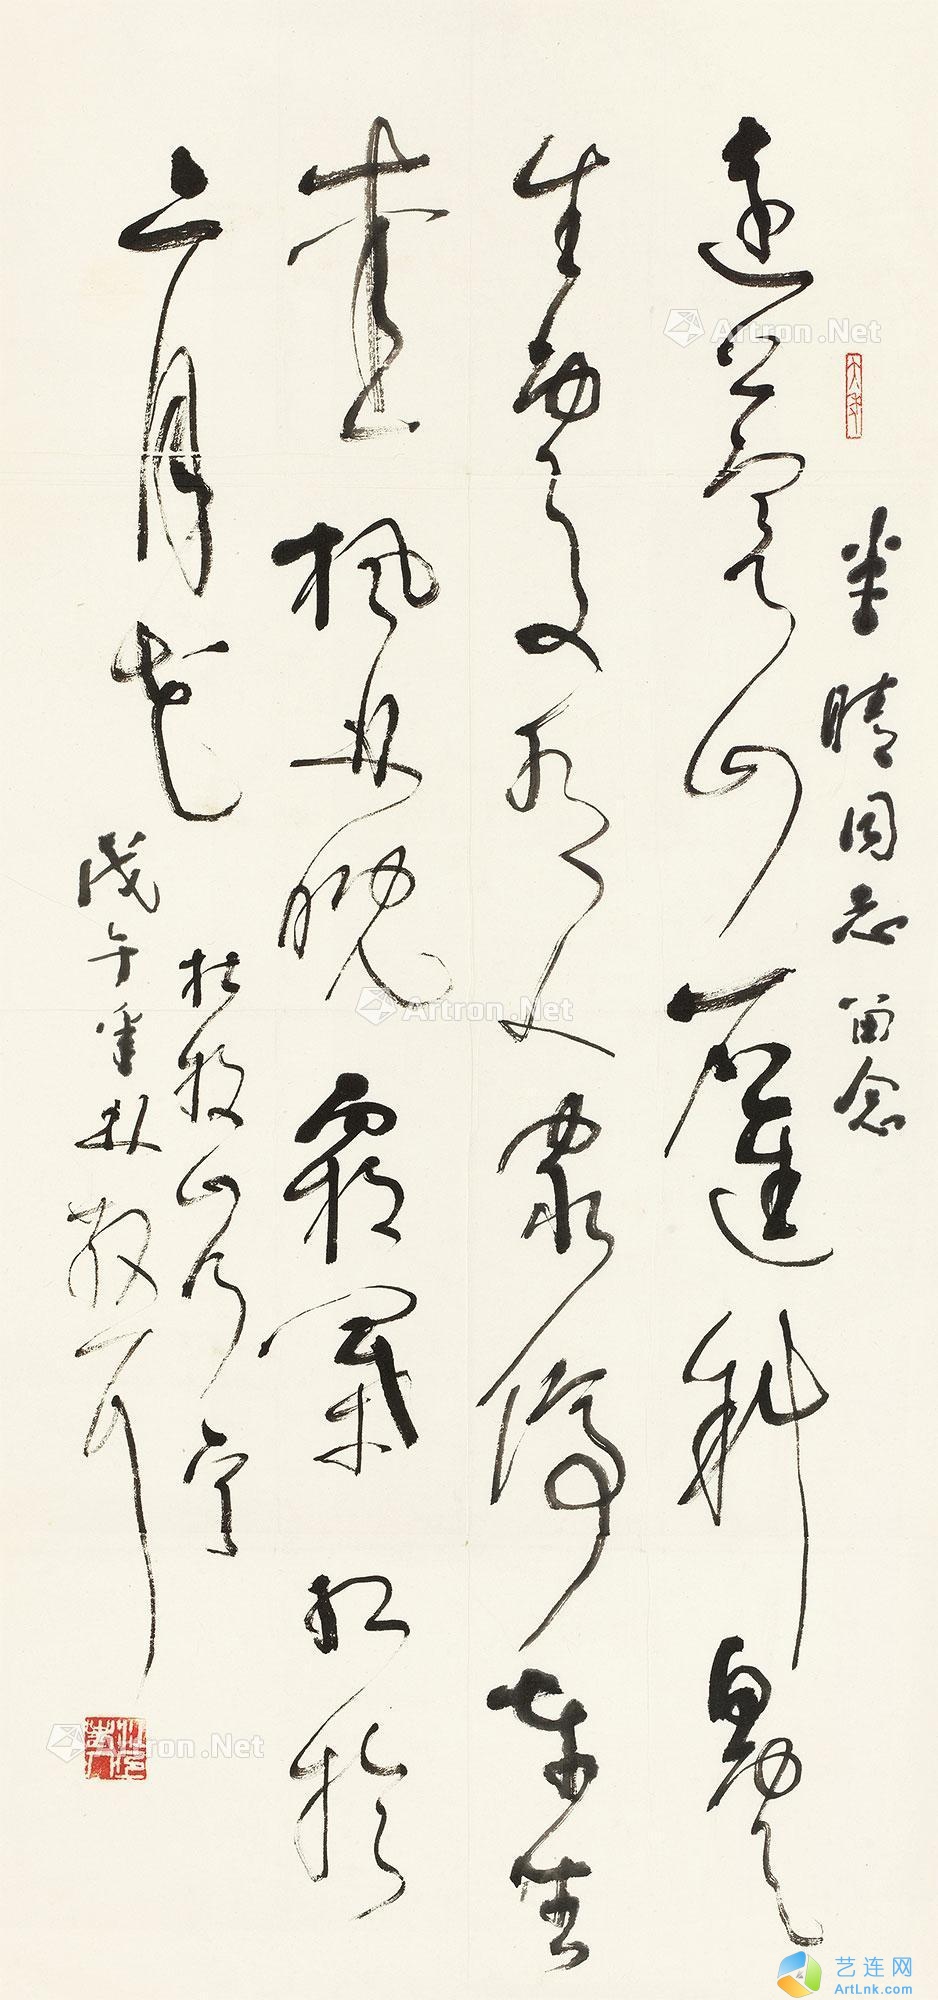 晴同志留念
遠上寒山石逕斜白雲
生處有人家停車坐
愛楓林晚霜葉紅於
二月花
杜牧山行
戊午年林散耳
Artron.Net
Artron.Net
Artron.Net
艺连网
ArtLnk.com